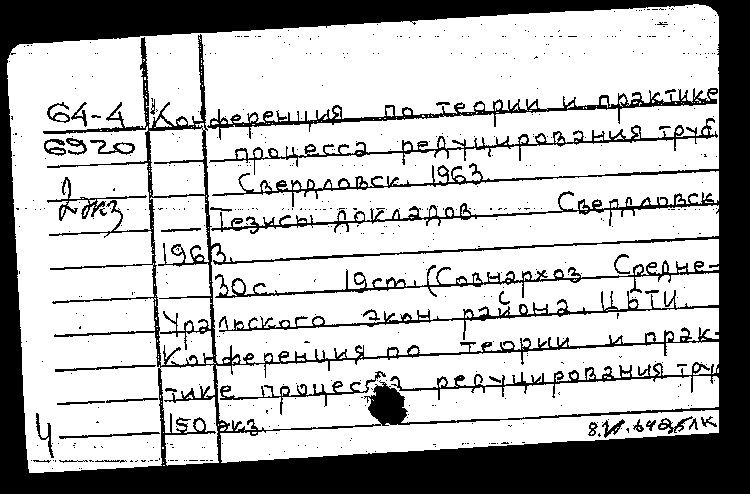 64-4 Конференция по теории и практике
6920 процесса редуцирования труб.
2 экз Свердловск. 1963.
Тезисы докладов. Свердловск,
1963.
30с. 19ст. (Совнархоз Средне-
Уральского экон. района. ЦБТИ.
Конференция по теории и прак-
тике процесса редуцирования труб
150 экз.
4